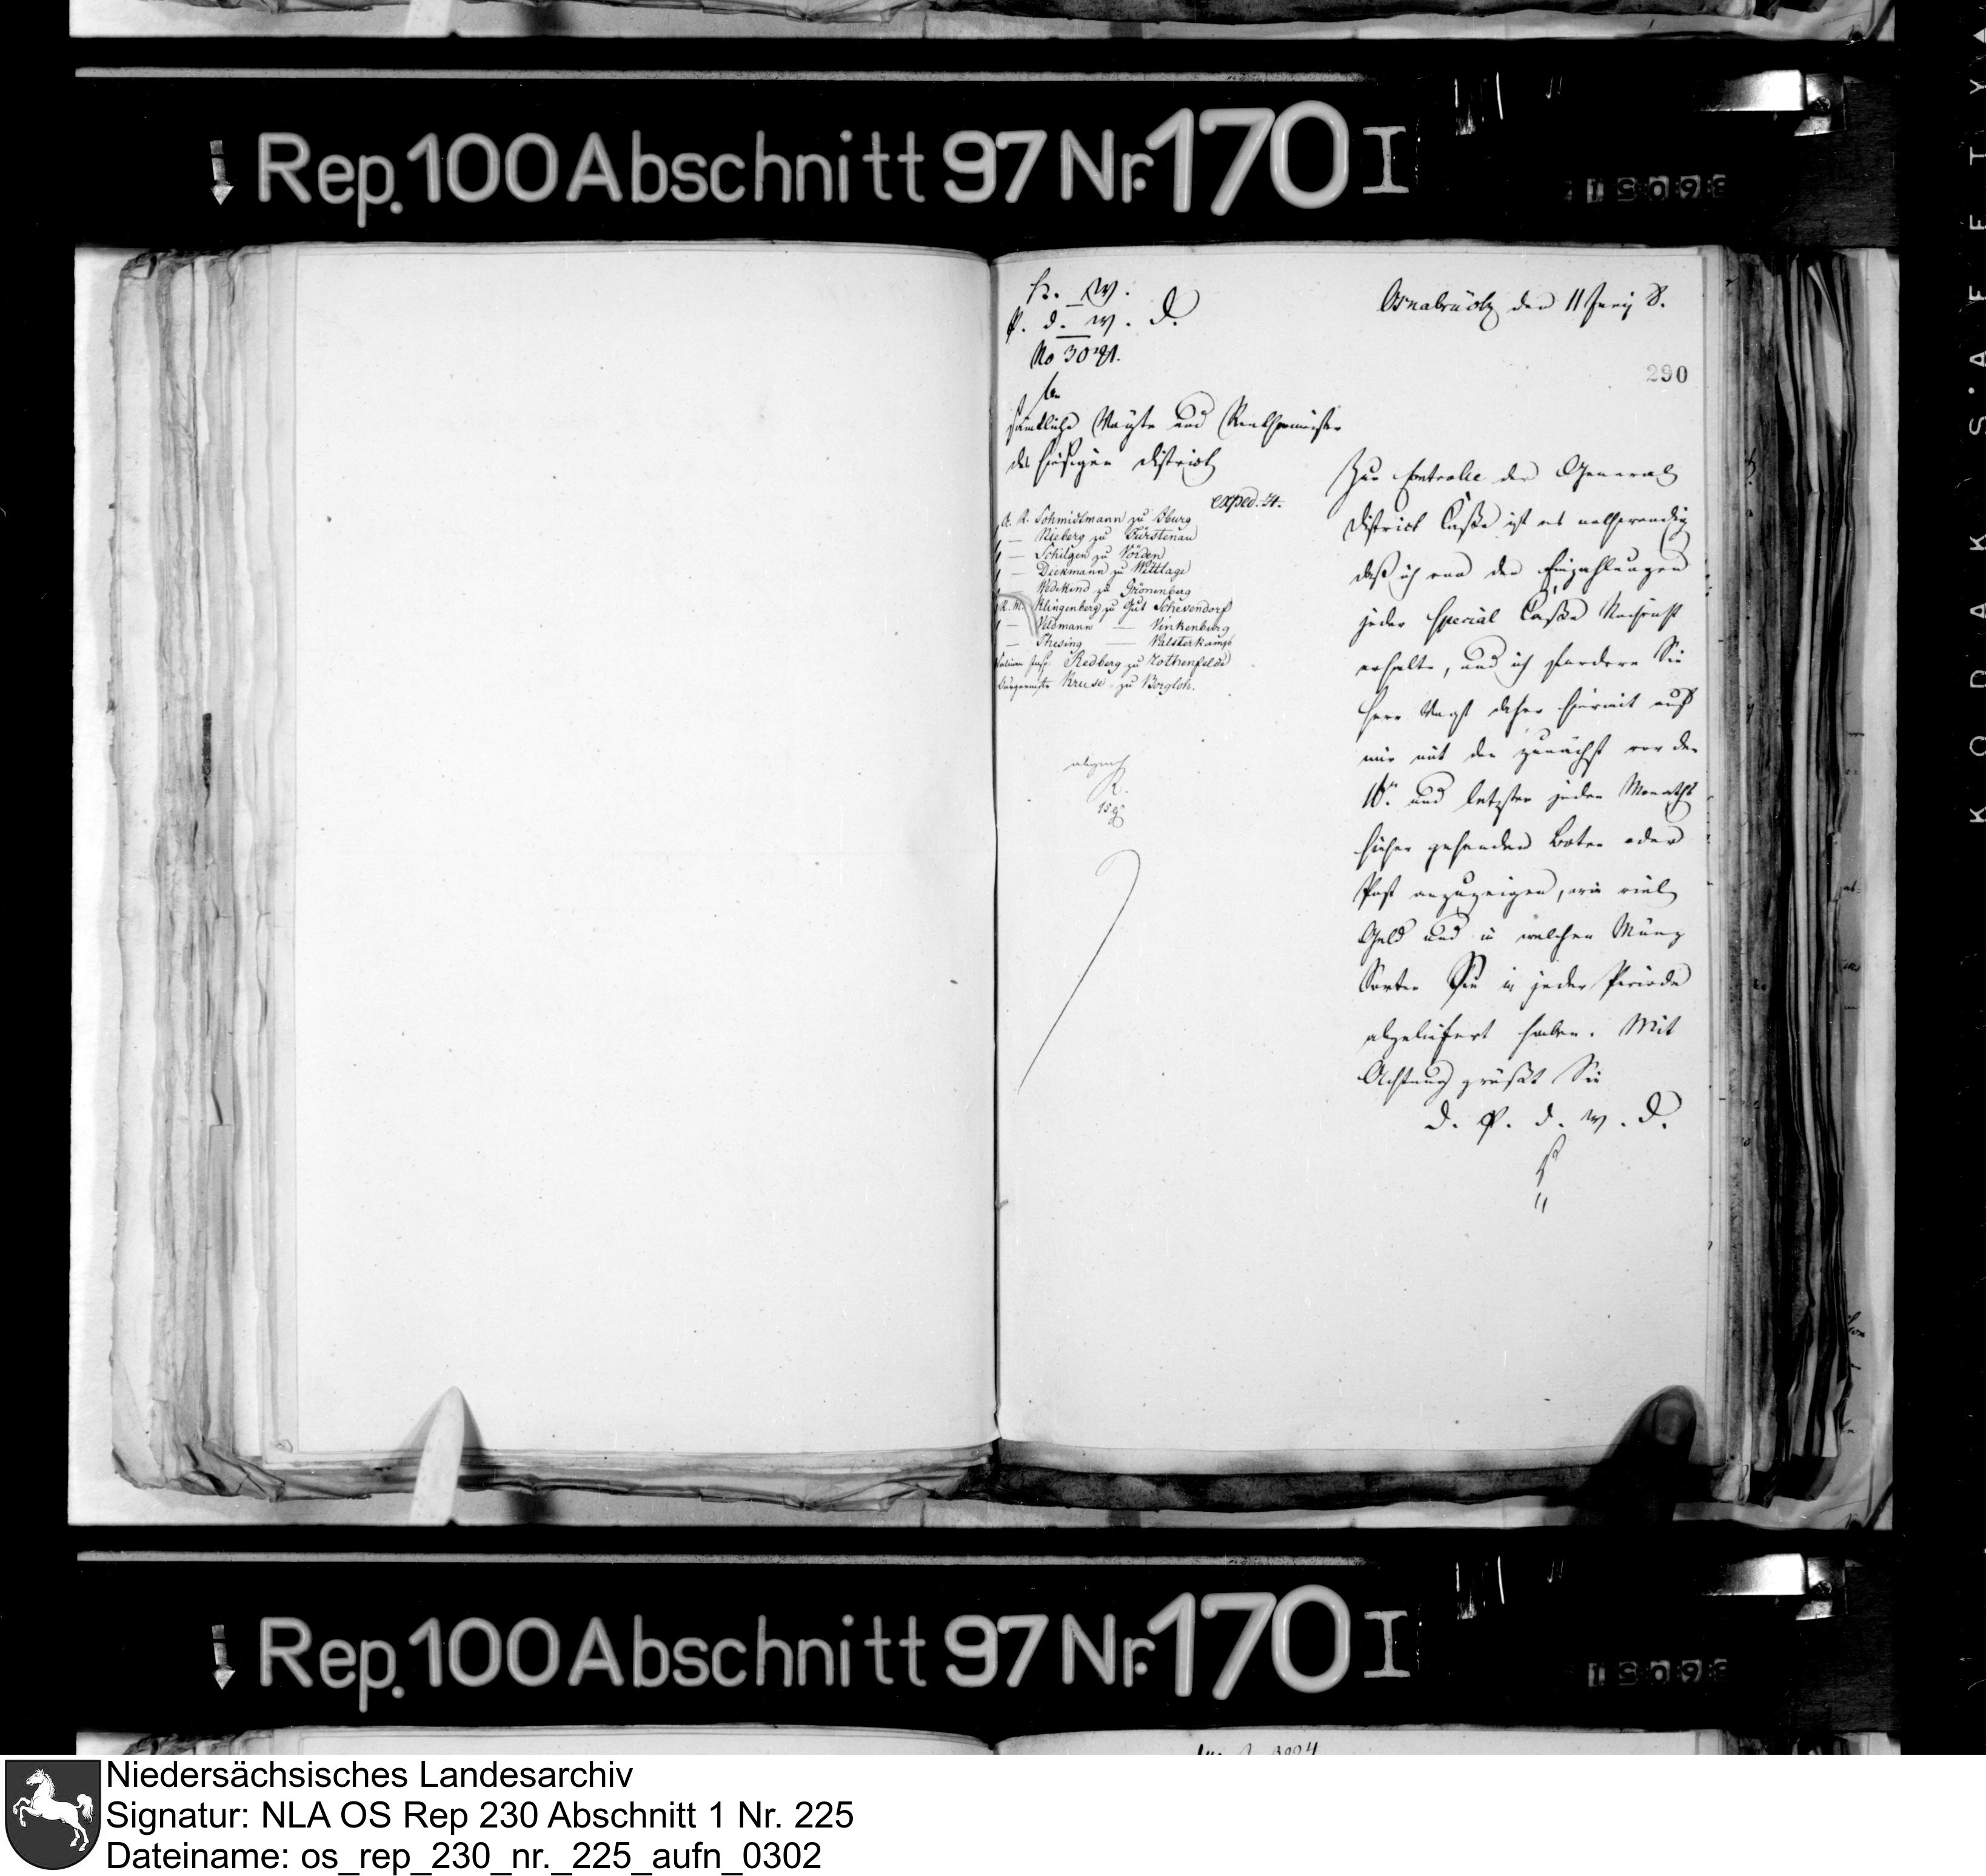 Rep. 100 Abschnitt 97 Nr. 170 I
K. W.
P. d. W. D.
No 3081.
Osnabrück den 11 Junij 8.
290
An
sämtliche Vögte und Rentheimeister
des hiesigen District
exped. H.
A. R. Schmidtmann zu Iburg
— Rieberg zu Fürstenau
— Schilgen zu Vörden
— Dickmann zu Wittlage
Wedekind zu Grönenberg
R. M. Klingenberg zu Gut Schevendorf
— Veldmann — Vinkenburg
— Thesing — Palsterkamp
Salinen Insp. Redberg zu Rothenfelde
Bürgermstr Kruse zu Borgloh.
Zur Controlle der General
District Casse ist es nothwendig
daß ich von den Einzahlungen
jeder Special Casse Nachricht
erhalte, und ich fordere Sie
Herr Vogt daher hiermit auf
mir mit der zunächst vor den
16ten und letzten jeden Monaths
hieher gehenden Boten oder
Post anzuzeigen, wie viel
Geld und in welchen Münz
Sorten Sie in jeder Periode
abgeliefert haben. Mit
Achtung grüßt Sie
D. P. d. W. D.
Rep. 100 Abschnitt 97 Nr. 170 I
Niedersächsisches Landesarchiv
Signatur: NLA OS Rep 230 Abschnitt 1 Nr. 225
Dateiname: os_rep_230_nr._225_aufn_0302